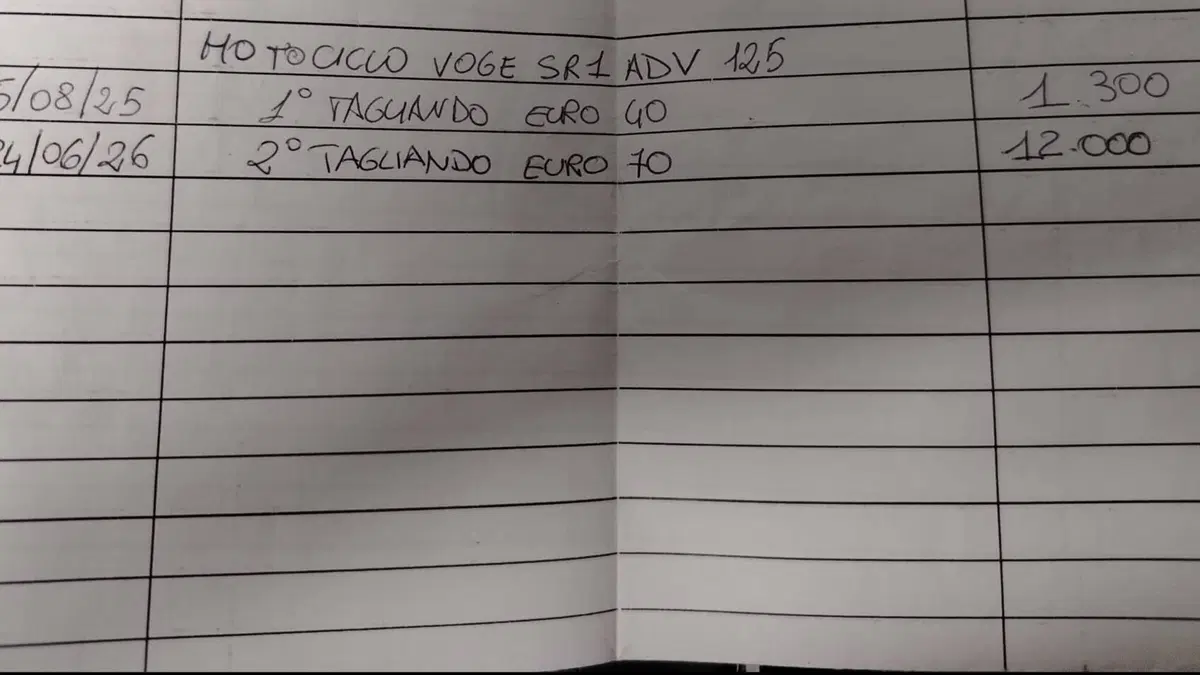 MOTOCICLO VOGE SR1 ADV 125
5/08/25 1° TAGLIANDO EURO 40 1.300
24/06/26 2° TAGLIANDO EURO 70 12.000